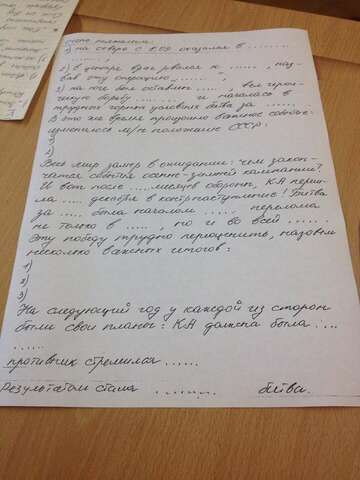 1) на севере с 8.09 оказался в ........
2) в центре враг рвался к ......., наз-
вав эту операцию „ ...... "
3) на юге враг оставил ..... вел герои-
ческую борьбу ........ и началась в
трудных горных условиях битва за ......
В это же время произошло важное событие:
изменилось м/н положение СССР:
1)
2)
Весь мир замер в ожидании: чем закон-
чатся события осенне-зимней кампании?
И вот после ..... месяцев обороны, КА переш-
ла ..... декабря в контрнаступление! Битва
за ..... была началом ..... перелома
не только в ....., но и во всей .....
Эту победу трудно переоценить, назовём
несколько важных итогов:
1)
2)
3)
На следующий год у каждой из сторон
были свои планы: КА должна была ....
......
противник стремился .....
Результатом стала ........ битва.